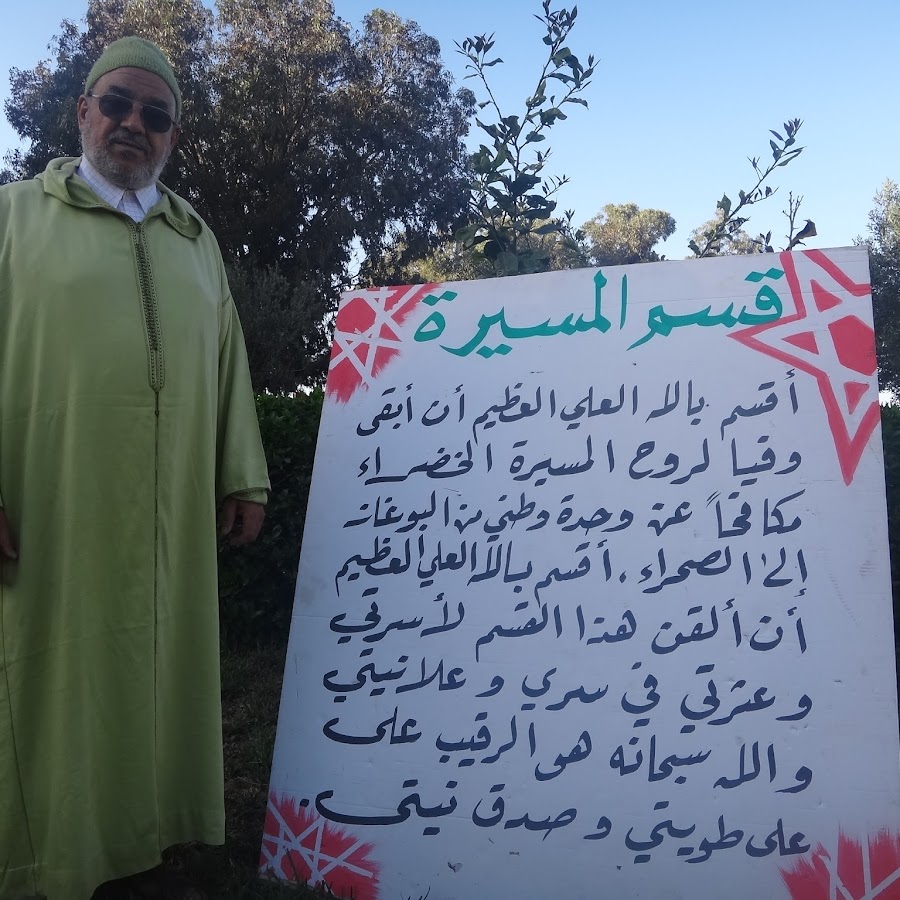 قسم المسيرة
أقسم بالله العلي العظيم أن أبقى
وفيا لروح المسيرة الخضراء
مكافحاً عن وحدة وطني من البوغاز
إلى الصحراء، أقسم بالله العلي العظيم
أن ألقن هذا القسم لأسرتي
وعترتي في سري وعلانيتي
والله سبحانه هو الرقيب على
على طويتي وصدق نيتي.